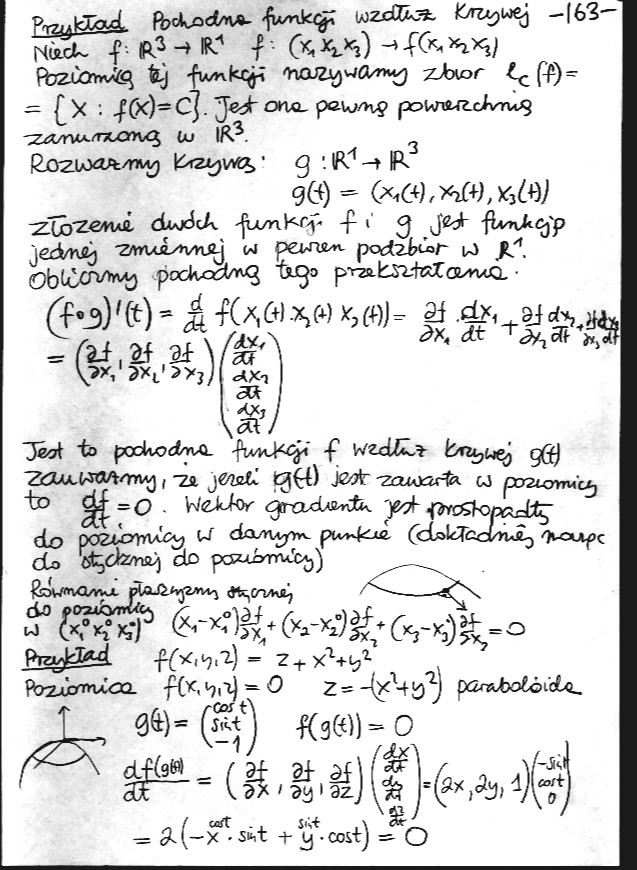 Przykład Pochodna funkcji wzdłuż krzywej -163-
Niech f: ℝ³ → ℝ¹ f: (x₁ x₂ x₃) → f(x₁ x₂ x₃)
Poziomicą tej funkcji nazywamy zbior l_C(f) =
= {X : f(X) = C}. Jest ona pewną powierzchnią
zanurzoną w ℝ³.
Rozważmy krzywą: g : ℝ¹ → ℝ³
g(t) = (x₁(t), x₂(t), x₃(t))
złożenie dwóch funkcji f i g jest funkcją
jednej zmiennej w pewien podzbior w ℝ¹.
Obliczmy pochodną tego przekształcenia.
(f∘g)'(t) = d/dt f(x₁(t) x₂(t) x₃(t)) = ∂f/∂x₁ · dx₁/dt + ∂f/∂x₂ dx₂/dt + ∂f/∂x₃ dx₃/dt
= (∂f/∂x₁, ∂f/∂x₂, ∂f/∂x₃) (dx₁/dt dx₂/dt dx₃/dt)
Jest to pochodna funkcji f wzdłuż krzywej g(t)
zauważmy, że jeżeli g(t) jest zawarta w poziomicy
to df/dt = 0. Wektor gradientu jest prostopadły
do poziomicy w danym punkcie (dokładniej mówiąc
do stycznej do poziomicy)
Równanie płaszczyzny stycznej
do poziomicy
w (x₁⁰ x₂⁰ x₃⁰) (x₁-x₁⁰) ∂f/∂x₁ + (x₂-x₂⁰) ∂f/∂x₂ + (x₃-x₃⁰) ∂f/∂x₃ = 0
Przykład f(x,y,z) = z + x² + y²
Poziomica f(x,y,z) = 0 z = -(x²+y²) paraboloida
g(t) = (cos t sin t -1) f(g(t)) = 0
df(g(t))/dt = (∂f/∂x, ∂f/∂y, ∂f/∂z) (dx/dt dy/dt dz/dt) = (2x, 2y, 1) (-sint cost 0)
= 2(-x^cost · sint + y^sint · cost) = 0